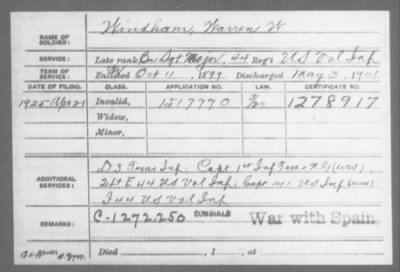 NAME OF SOLDIER: Windham, Warren W
SERVICE: Late rank Bn Sgt Major, 44 Reg't US Vol Inf
TERM OF SERVICE: Enlisted Oct 11, 1899 Discharged May 3, 1901
DATE OF FILING. CLASS. APPLICATION NO. LAW. CERTIFICATE NO.
1925 Apr 21 Invalid, 1517770 1278917
Widow,
Minor,
ADDITIONAL SERVICES: D 3 Texas Inf, Capt 1st Inf Texas N G (WW)
E 44 US Vol Inf; Capt 141 US Inf (WW)
44 US Vol Inf
REMARKS: C-1272250 War with Spain
Died , 1 , at